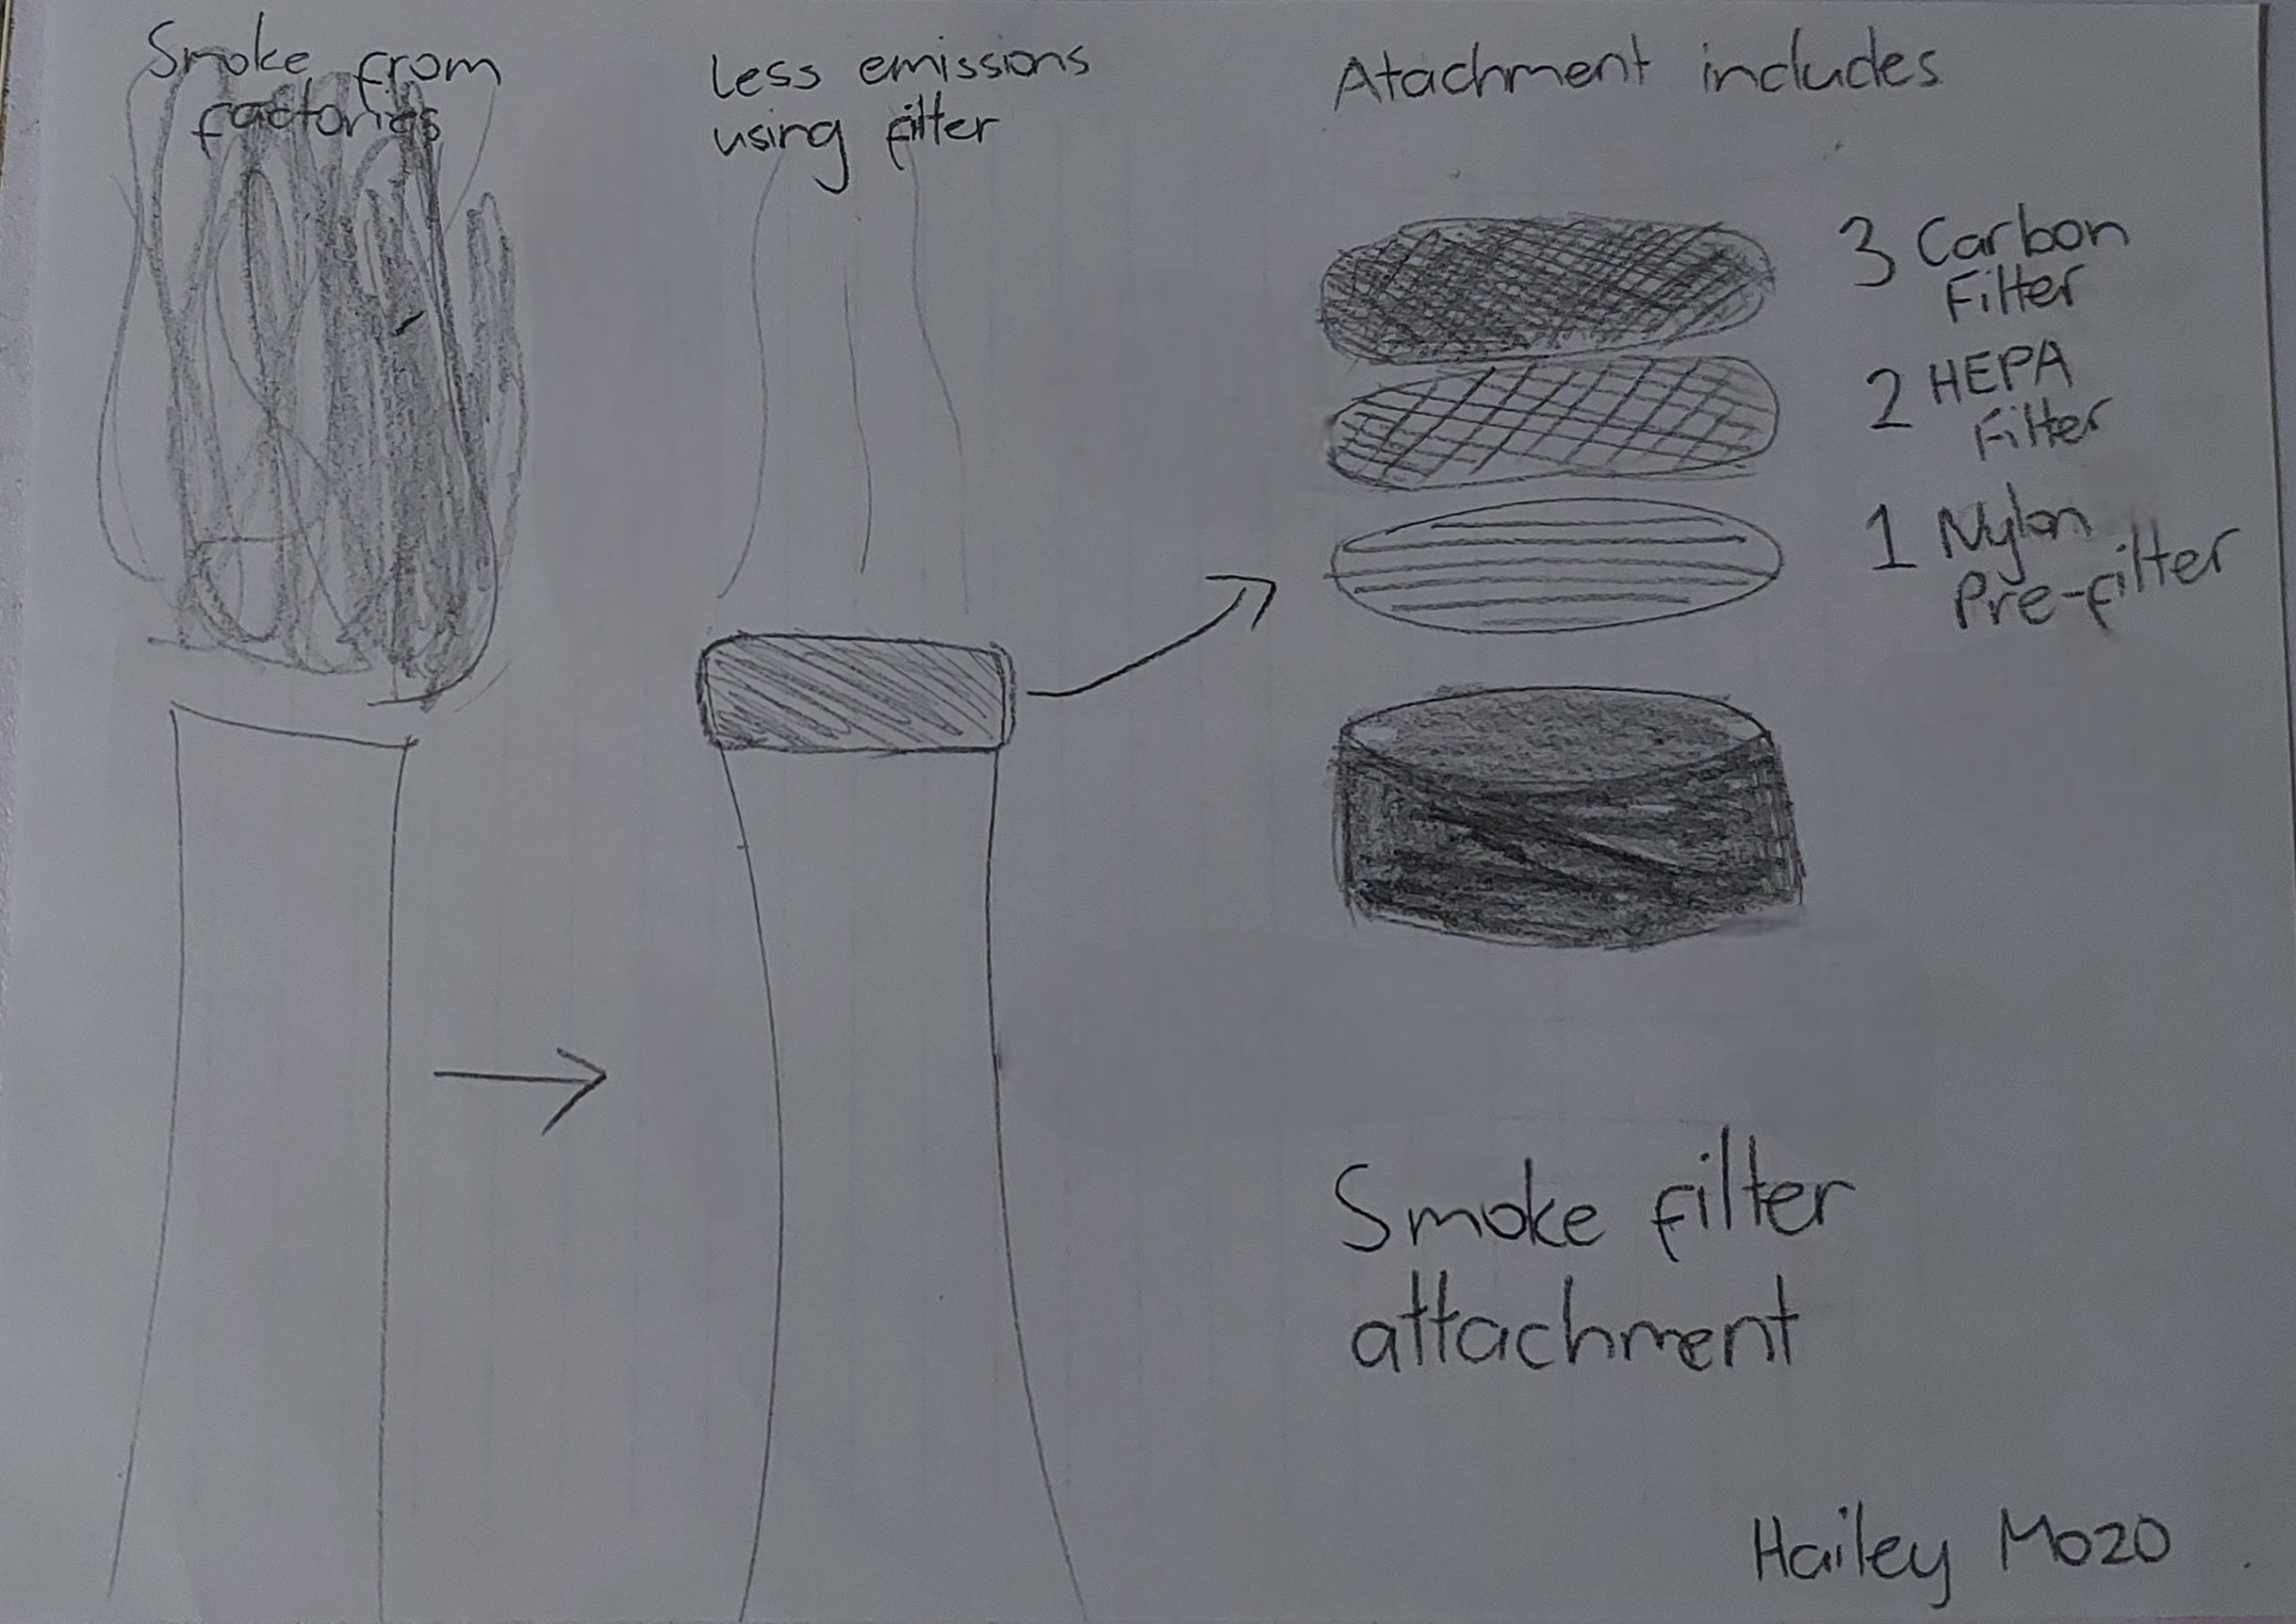 Smoke from
factories
less emissions
using filter
Atachment includes
3 Carbon
Filter
2 HEPA
Filter
1 Nylon
Pre-filter
Smoke filter
attachment
Hailey Mozo